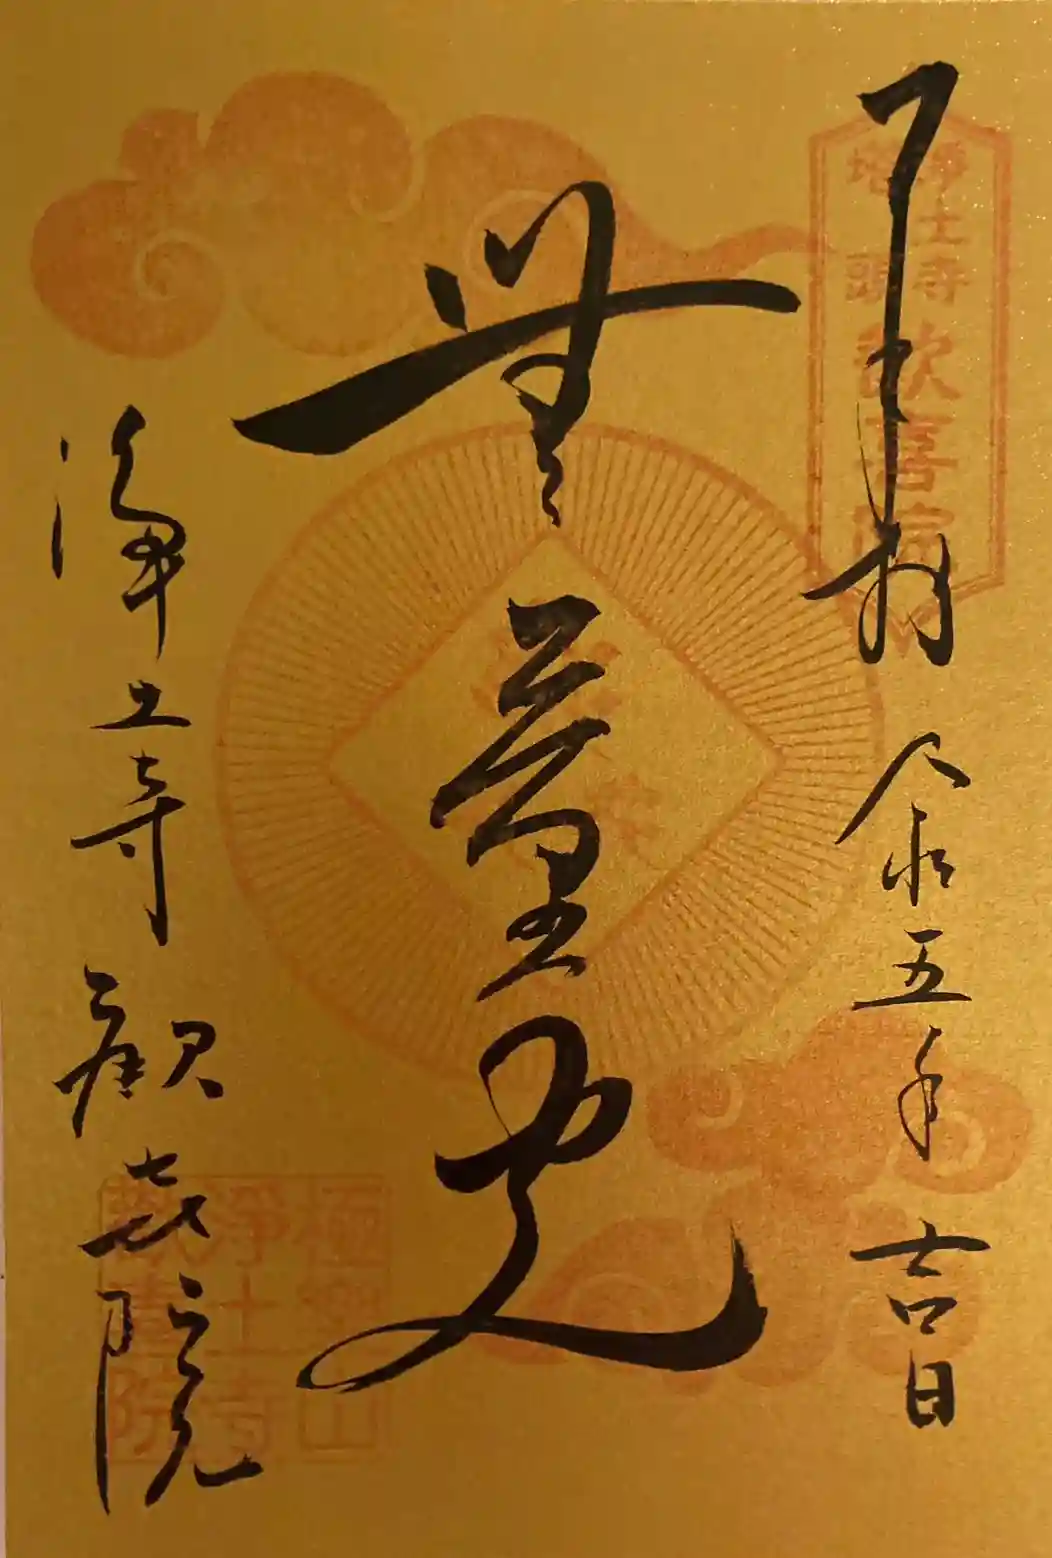 奉拝 令和五年吉日
淨土寺
塔頭
歓喜院
無量光
浄土寺 歓喜院
極樂山
淨土寺
歓喜院